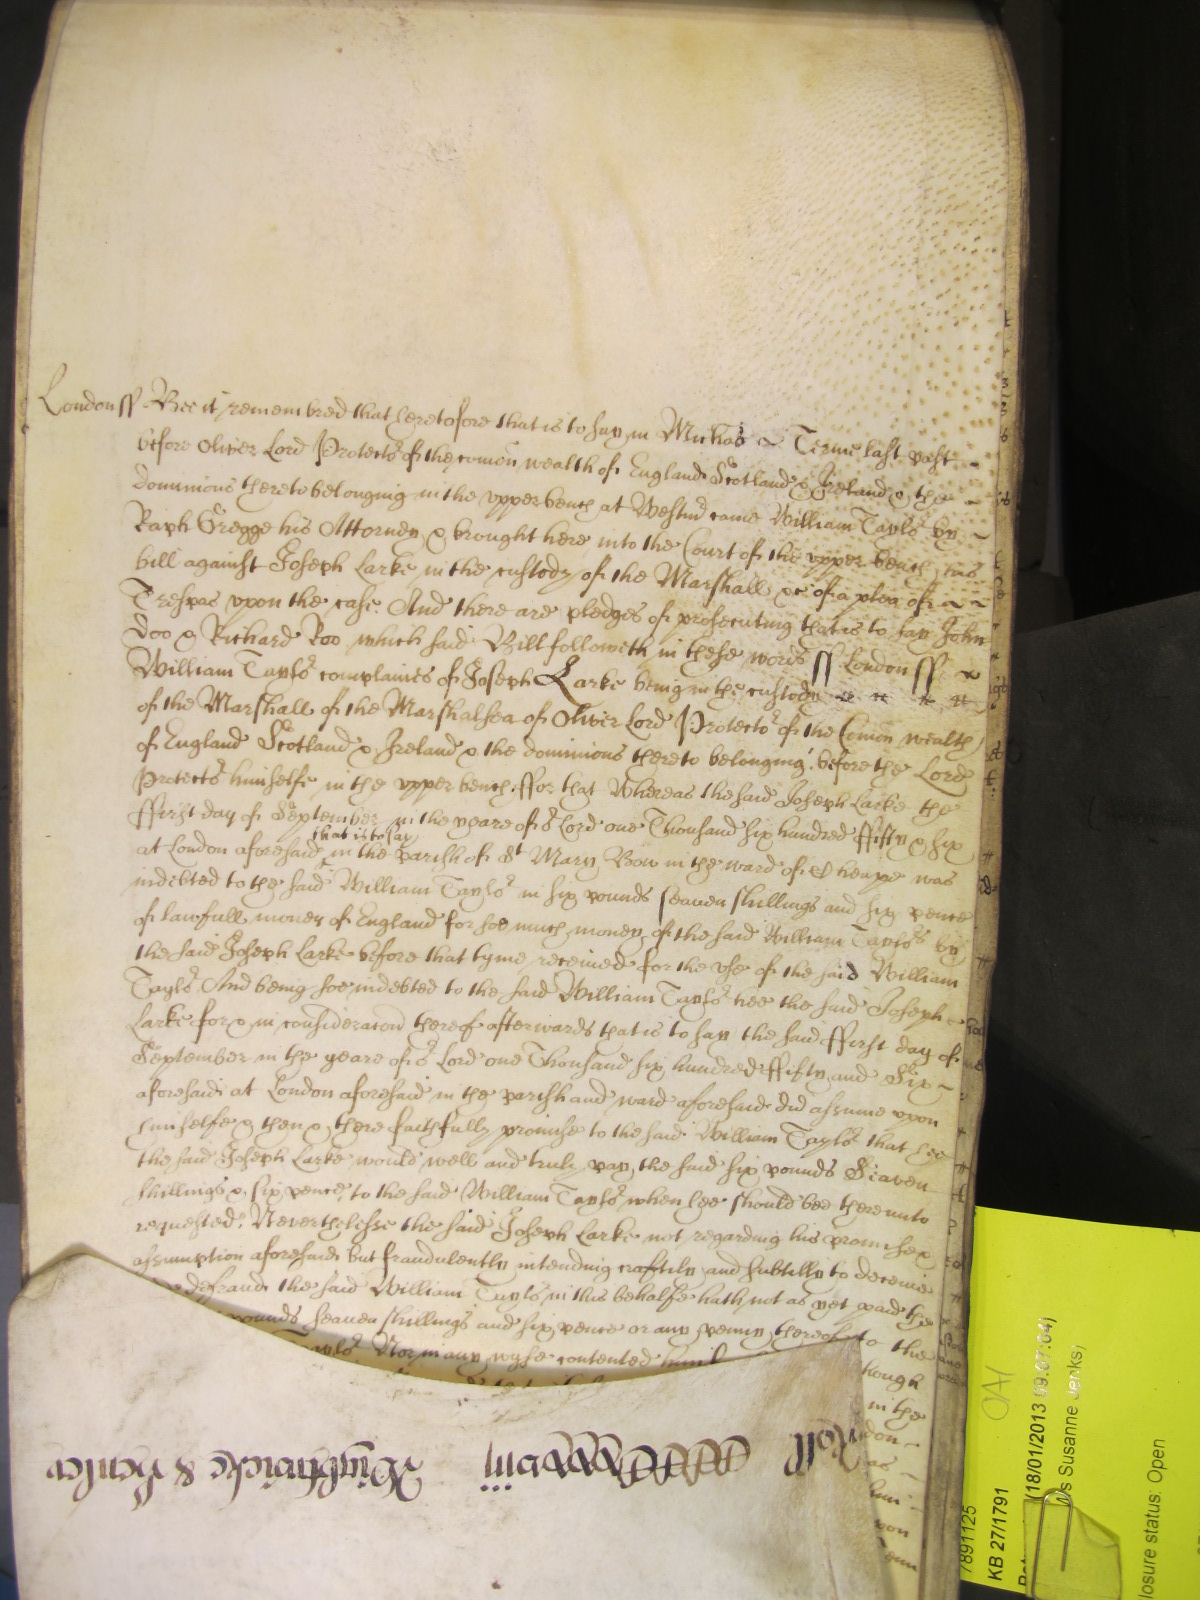 London ss Bee it remembred that heretofore that is to say in Michās Terme last past
before Oliver Lord Protectoʳ of the com̄on wealth of England Scotland & Ireland & the
dominions thereto belonging in the upper bench at Westmʳ came William Tayloʳ by
Raph Gregge his Attorney & brought here into the Court of the upper bench his
bill against Joseph Larke in the custody of the Marshall &c of a plea of
Trespas upon the case And there are pledges of prosecuting that is to say John
Doo & Richard Roo which said Bill followeth in these words ss London ss
William Tayloʳ complaines of Joseph Larke being in the custody
of the Marshall of the Marshalsea of Oliver Lord Protectoʳ of the Com̄on wealth
of England Scotland & Ireland & the dominions thereto belonging before the Lord
Protectoʳ himselfe in the upper bench ffor that Whereas the said Joseph Larke the
ffirst day of September in the yeare of oʳ Lord one Thousand six hundred ffifty & six
that is to say
at London aforesaid in the Parish of Sᵗ Mary Bow in the ward of Cheape was
indebted to the said William Tayloʳ in six pounds seaven shillings and six pence
of lawfull money of England for soe much money of the said William Tayloʳs by
the said Joseph Larke before that tyme received for the use of the said William
Tayloʳ And being soe indebted to the said William Tayloʳ hee the said Joseph
Larke for & in consideracōn thereof afterwards that is to say the said ffirst day of
September in the yeare of oʳ Lord one Thousand six hundred ffifty and Six
aforesaid at London aforesaid in the parish and ward aforesaid did assume upon
himselfe & then & there faithfully promise to the said William Tayloʳ that hee
the said Joseph Larke would well and truly pay the said six pounds Seaven
shillings & six pence to the said William Tayloʳ when hee should bee thereunto
requested Neverthelesse the said Joseph Larke not regarding his promise &
assumption aforesaid but fraudulently intending craftily and subtilly to deceive
defraud the said William Tayloʳ in this behalfe hath not as yet paid the
pounds seaven shillings and six pence or any penny thereof to the
Tayloʳ Nor in any wyse contented
though
in the
don
as
him
pon
Roll
Wightwicke & Henley
7891125
KB 27/1791
(18/01/2013 09:07:04)
Ms Susanne Jenks,
losure status: Open